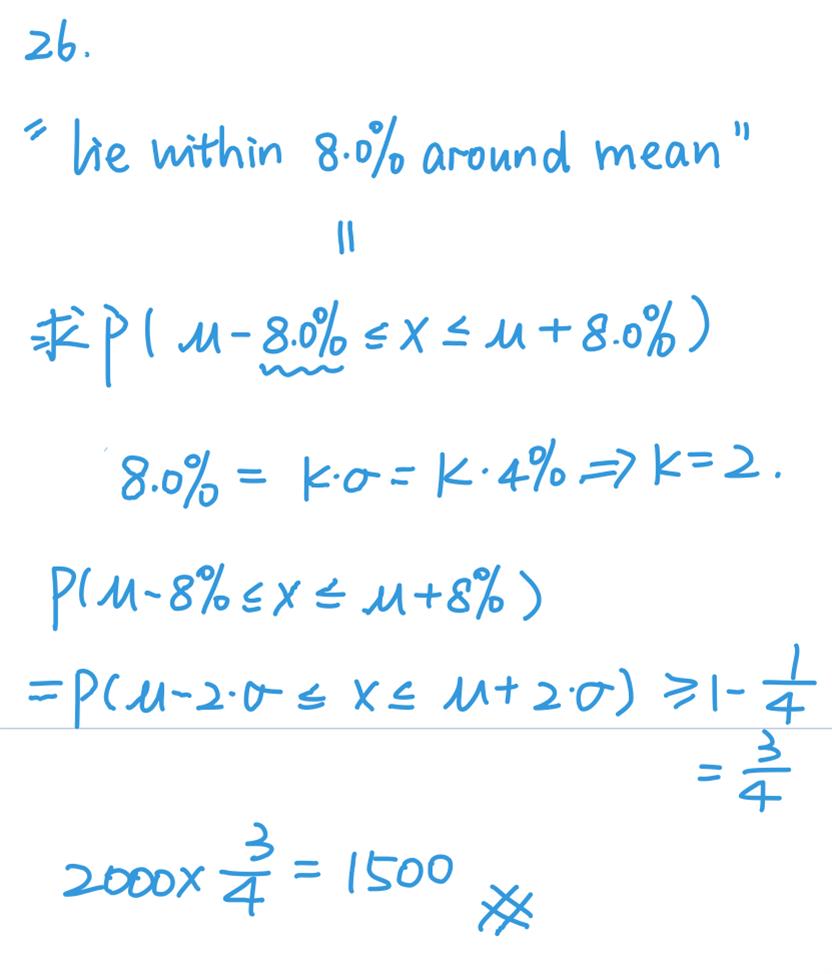 26.
"lie within 8.0% around mean"
||
求P( μ - 8.0% ≤ x ≤ μ + 8.0% )
8.0% = k·σ = k·4% ⇒ k=2.
P(μ-8% ≤ x ≤ μ+8%)
=P(μ-2·σ ≤ x ≤ μ+2·σ) ≥ 1- 1/4
= 3/4
2000× 3/4 = 1500 #